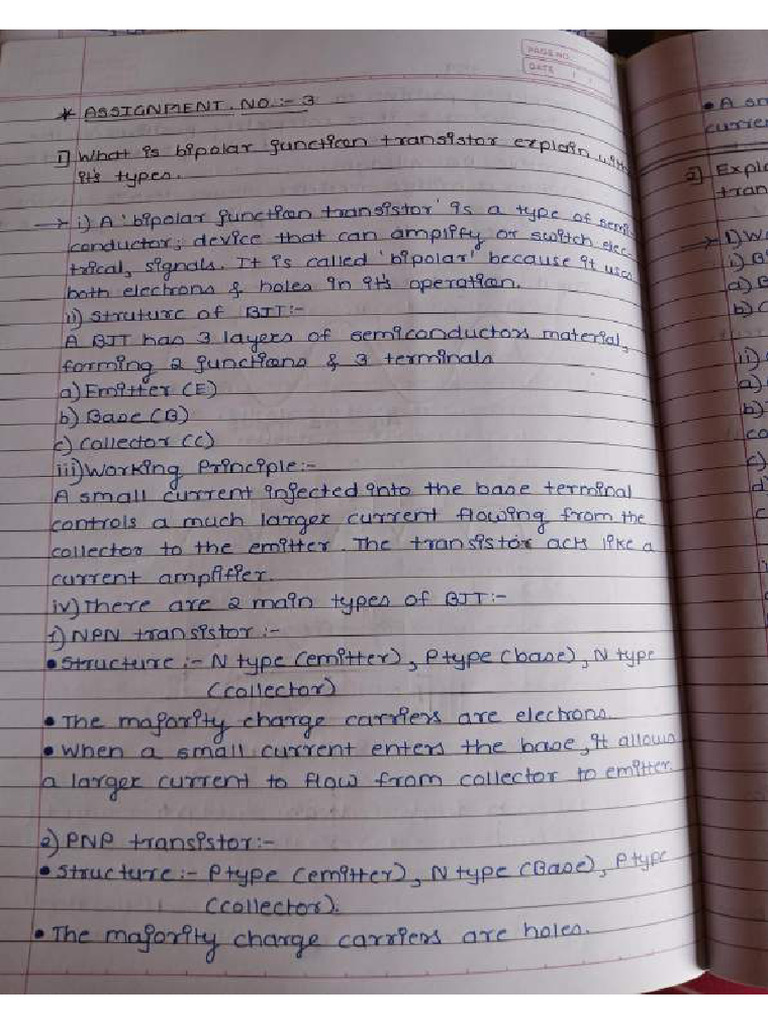 PAGE NO.
DATE / /
* ASSIGNMENT. NO:- 3
1) What is bipolar junction transistor explain with
it's types.
→ i) A 'bipolar junction transistor' is a type of semi-
conductor, device that can amplify or switch elec-
trical, signals. It is called 'bipolar' because it uses
both electrons & holes in it's operation.
ii) Struture of BJT:-
A BJT has 3 layers of semiconductors material,
forming 2 junctions & 3 terminals
a) Emitter (E)
b) Base (B)
c) Collector (C)
iii) Working Principle:-
A small current injected into the base terminal
controls a much larger current flowing from the
collector to the emitter. The transistor acts like a
current amplifier.
iv) There are 2 main types of BJT:-
1) NPN transistor:-
• Structure:- N type (emitter), P type (base), N type
(collector)
• The majority charge carriers are electrons.
• When a small current enters the base, it allows
a larger current to flow from collector to emitter.
2) PNP transistor:-
• Structure:- P type (emitter), N type (Base), P type
(collector).
• The majority charge carriers are holes.